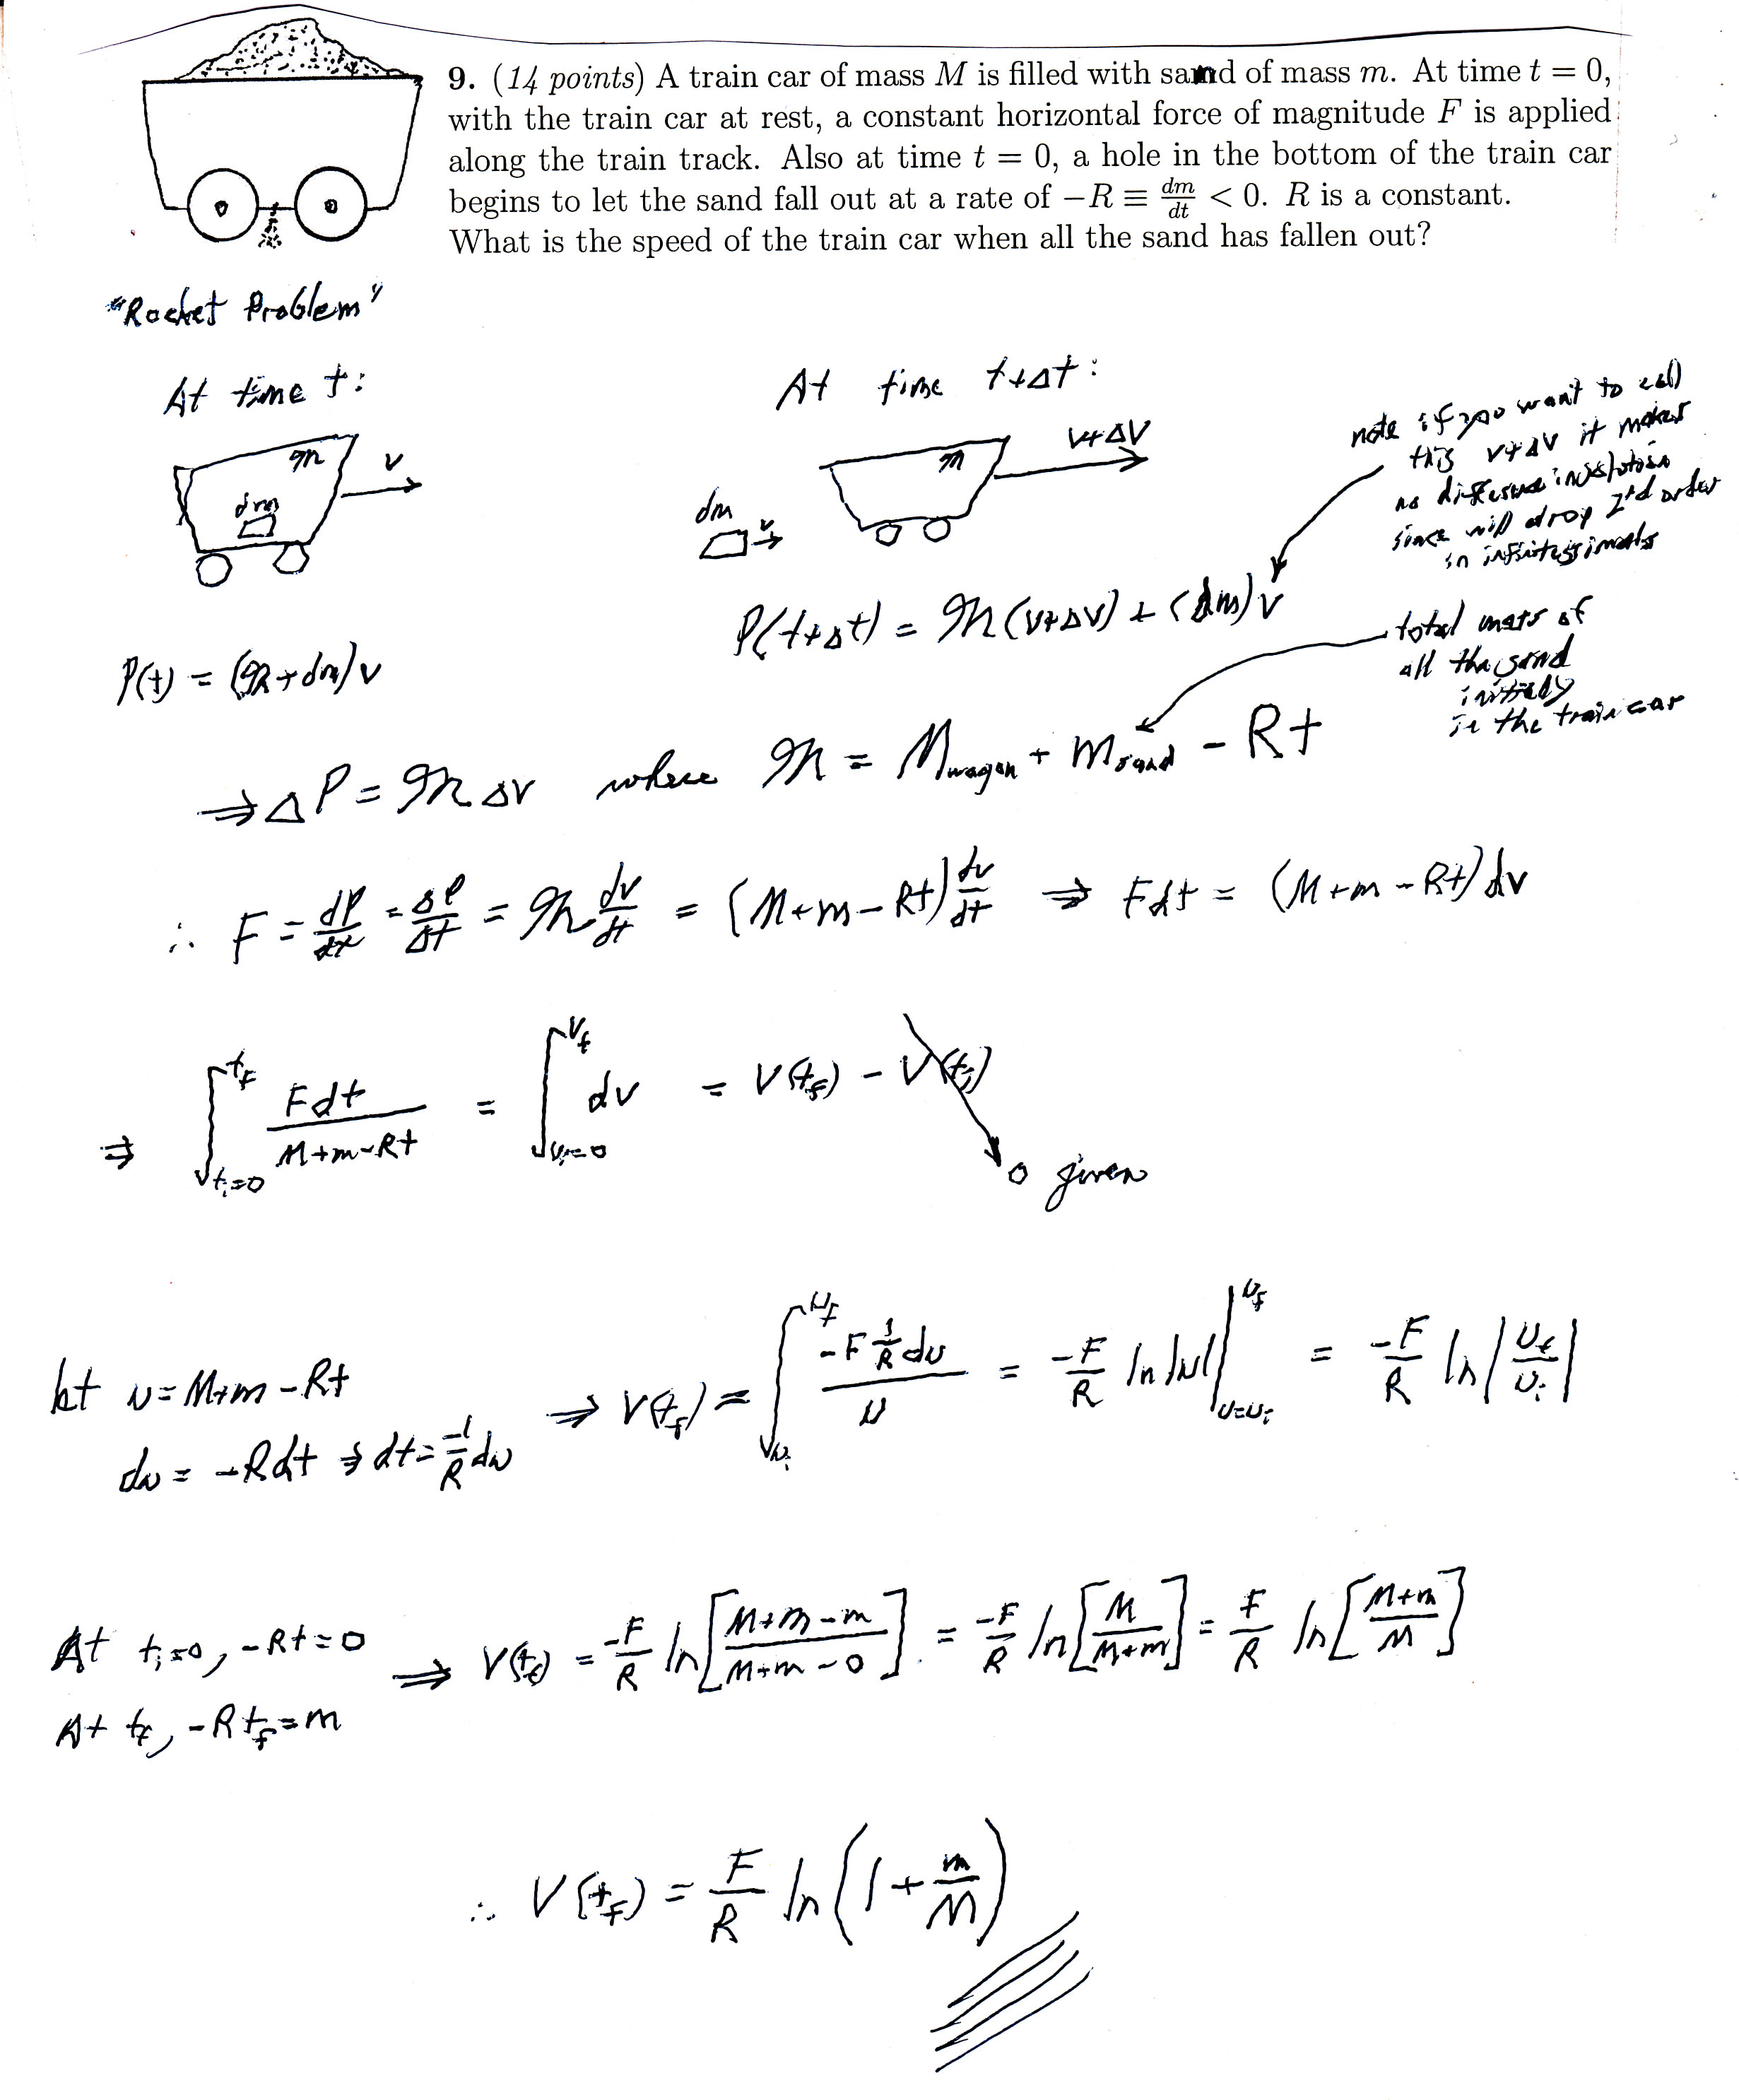 9. (14 points) A train car of mass M is filled with sand of mass m. At time t = 0,
with the train car at rest, a constant horizontal force of magnitude F is applied
along the train track. Also at time t = 0, a hole in the bottom of the train car
begins to let the sand fall out at a rate of −R ≡ dm/dt < 0. R is a constant.
What is the speed of the train car when all the sand has fallen out?
"Rocket Problem"
At time t:
𝔐
v
dm
At time t+Δt:
v+Δv
𝔐
dm
v
note if you want to call
this v+Δv it makes
no difference in solution
since will drop 2nd order
in infinitessimals
P(t) = (𝔐+dm)v
P(t+Δt) = 𝔐(v+Δv) + (dm)v
total mass of
all the sand
initially
in the train car
⇒ ΔP = 𝔐Δv where 𝔐 = M_wagon + m_sand − Rt
∴ F = dP/dt = ΔP/Δt = 𝔐 dv/dt = (M+m−Rt) dv/dt ⇒ Fdt = (M+m−Rt)dv
⇒ ∫_{t_i=0}^{t_f} Fdt/(M+m−Rt) = ∫_{v_i=0}^{v_f} dv = v(t_f) − v(t_i)
0 given
let u = M+m−Rt
du = −Rdt ⇒ dt = −1/R du
⇒ v(t_f) = ∫_{u_i}^{u_f} −F 1/R du / u = −F/R ln|u| |_{u=u_i}^{u_f} = −F/R ln|u_f/u_i|
At t_i=0, −Rt=0
At t_f, −Rt_f=m
⇒ v(t_f) = −F/R ln[(M+m−m)/(M+m−0)] = −F/R ln[M/(M+m)] = F/R ln[(M+m)/M]
∴ v(t_f) = F/R ln(1 + m/M)